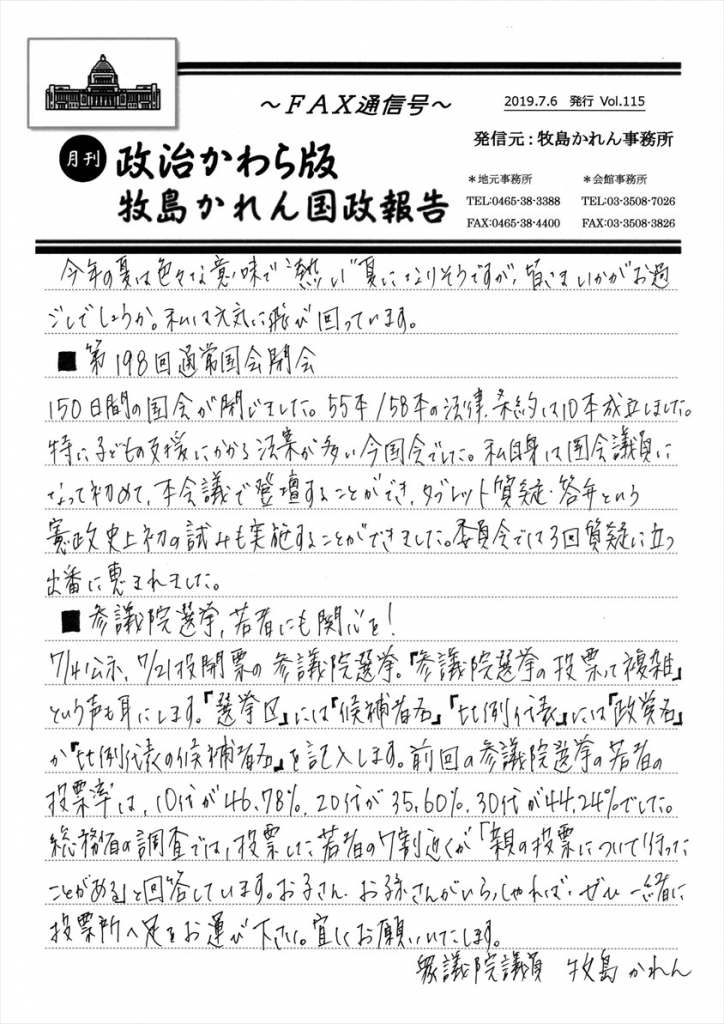 ～FAX通信号～
2019.7.6 発行 Vol.115
発信元：牧島かれん事務所
月刊
政治かわら版
牧島かれん国政報告
＊地元事務所
TEL:0465-38-3388
FAX:0465-38-4400
＊会館事務所
TEL:03-3508-7026
FAX:03-3508-3826
今年の夏は色々な意味で"熱い"夏になりそうですが、皆さまいかがお過
ごしでしょうか。私は元気に飛び回っています。
■第198回通常国会閉会
150日間の国会が閉じました。55本/58本の法律、条約は10本成立しました。
特に子どもの支援にかかる法案が多い今国会でした。私自身は国会議員に
なって初めて、本会議で登壇することができ、タブレット質疑・答弁という
憲政史上初の試みも実施することができました。委員会では3回質疑に立つ
出番に恵まれました。
■参議院選挙、若者にも関心を！
7/4公示、7/21投開票の参議院選挙。『参議院選挙の投票って複雑』
という声も耳にします。『選挙区』には『候補者名』、『比例代表』には『政党名』
か『比例代表の候補者名』を記入します。前回の参議院選挙の若者の
投票率は、10代が46.78%、20代が35.60%、30代が44.24%でした。
総務省の調査では、投票した若者の7割近くが「親の投票について行った
ことがある」と回答しています。お子さん、お孫さんがいらっしゃれば、ぜひ一緒に
投票所へ足をお運び下さい。宜しくお願いいたします。
衆議院議員 牧島かれん